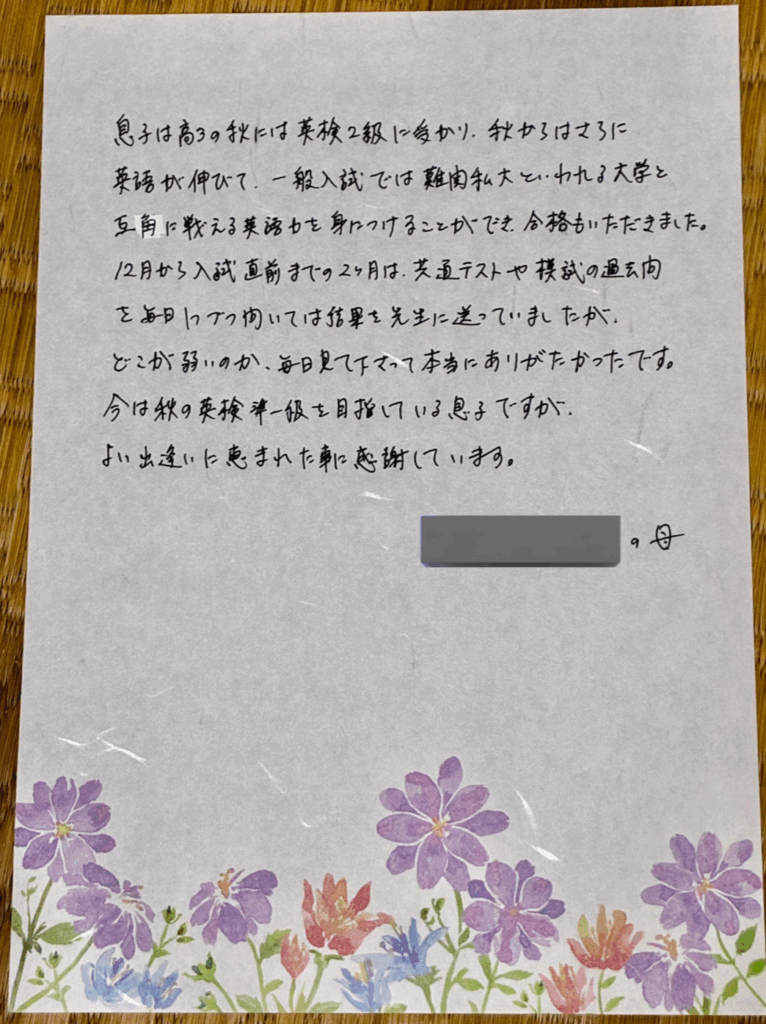 息子は高3の秋には英検2級に受かり、秋からはさらに
英語が伸びて、一般入試では難関私大といわれる大学と
互角に戦える英語力を身につけることができ、合格もいただきました。
12月から入試直前までの2ヶ月は、共通テストや模試の過去問
を毎日1つづつ解いては結果を先生に送っていましたが、
どこが弱いのか、毎日見て下さって本当にありがたかったです。
今は秋の英検準一級を目指している息子ですが、
よい出逢いに恵まれた事に感謝しています。
の母